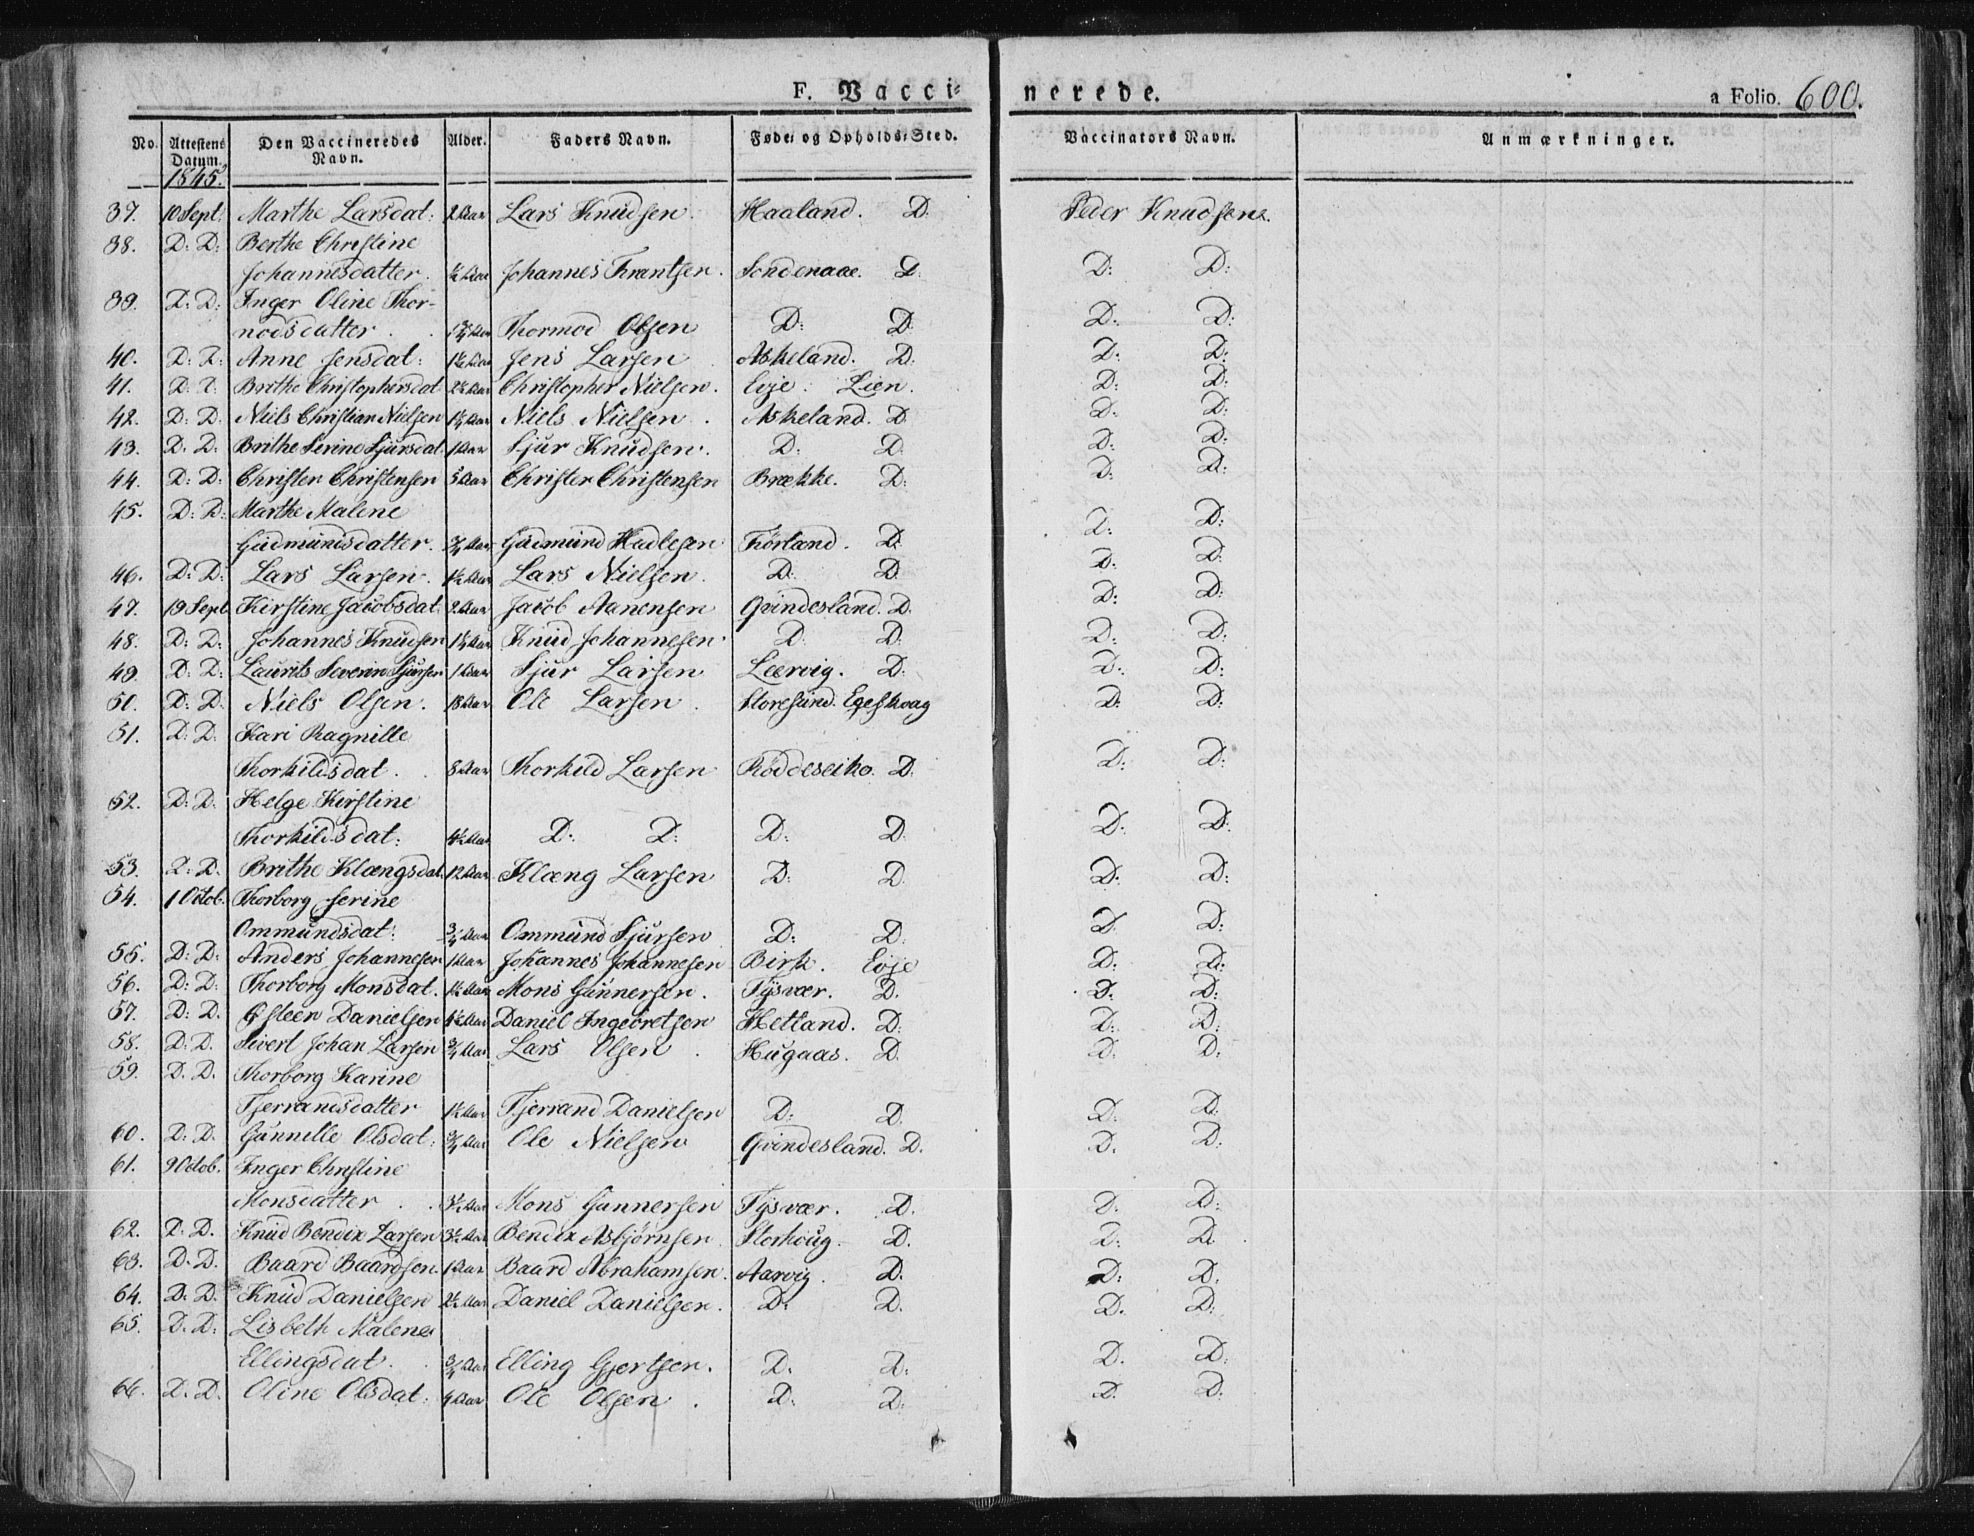 F. Vaccinerede. a Folio. 600.
No. Attestens Datum. Den Vaccineredes Navn. Alder. Faders Navn. Føde- og Opholds-Sted. Vaccinators Navn. Anmærkninger.
1845.
37. 10 Sept. Marthe Larsdat: 2 Aar Lars Knudsen. Haaland. D. Peder Knudsen.
38. D: D: Berthe Christine
Johannesdatter. Aar Johannes Frantsen. Søndenaae. D. D: D:
39. D: D: Inger Oline Thor-
modsdatter. Aar Thormod Olsen D: D. D: D:
40. D: D: Anne Jensdat: 1½ Aar Jens Larsen Askeland. D. D: D:
41. D: D: Berthe Christophersdat 2½ Aar Christopher Nielsen. Evje. Lien. D: D:
42. D: D: Niels Christian Nielsen Aar Niels Nielsen. Askeland. D. D: D:
43. D: D: Brithe Serine Sjursdat. 1 Aar Sjur Knudsen. D: D. D: D:
44. D: D: Christen Christensen 5 Aar Christen Christensen Brække. D: D: D:
45. D: D: Marthe Malene
Gudmundsdatter. ¾ Aar Gudmund Hadlesen Førland. D. D: D:
46. D: D: Lars Larsen. 1½ Aar Lars Nielsen. D: D. D: D:
47. 19 Sept. Kirstine Jacobsdat. 2 Aar Jacob Aanensen Qvindesland. D. D: D:
48. D: D: Johannes Knudsen Aar Knud Johannesen. D. D. D: D:
49. D: D: Laurits Severin Sjursen 1 Aar Sjur Larsen Leervig. D. D: D:
50. D: D. Niels Olsen. 18 Aar Ole Larsen. Storesund. D: D:
51. D: D. Kari Ragnille
Thorkildsdat. 8 Aar Thorkild Larsen D. D: D:
52. D: D. Helge Kirstine
Thorkildsdat: 4½ Aar D: D: D: D. D: D:
53. D: D. Brithe Klængsdat. 12 Aar Klæng Larsen D: D. D: D:
54. 1 Octob. Thorborg Serine
Ommundsdat: ¾ Aar Ommund Sjursen D: D. D. D:
55. D: D: Anders Johannesen 1 Aar Johannes Johannesen Birk. Evje D: D:
56. D: D: Thorborg Monsdat. 1½ Aar Mons Gunnersen. Tysvær. D. D: D:
57. D: D. Østeen Danielsen 1½ Aar Daniel Ingebretsen Hetland. D: D: D:
58. D: D. Sivert Johan Larsen ¾ Aar Lars Olsen. Hugaas. D. D: D:
59. D. D. Thorborg Karine
Tjerrandsdatter 1½ Aar Tjerrand Danielsen D: D. D: D:
60. D: D. Gunnille Olsdat: ¾ Aar Ole Nielsen Qvindesland. D. D. D:
61. 9 Octob. Inger Christine
Monsdatter. 3½ Aar Mons Gunnersen Tysvær. D. D: D:
62. D: D. Knud Bendix Larsen 3½ Aar Bendix Asbjørnsen. Storhoug. D. D: D.
63. D. D. Baard Baardsen. 1 Aar Baard Abrahamsen. Aarvig. D. D: D.
64. D. D. Knud Danielsen 2½ Aar Daniel Danielsen. D. D. D. D:
65. D. D: Lisbeth Malene
Ellingsdat. ¾ Aar Elling Gjertsen. D. D: D. D:
66. D. D. Oline Olsdat. 4 Aar Ole Olsen. D. D. D. D: